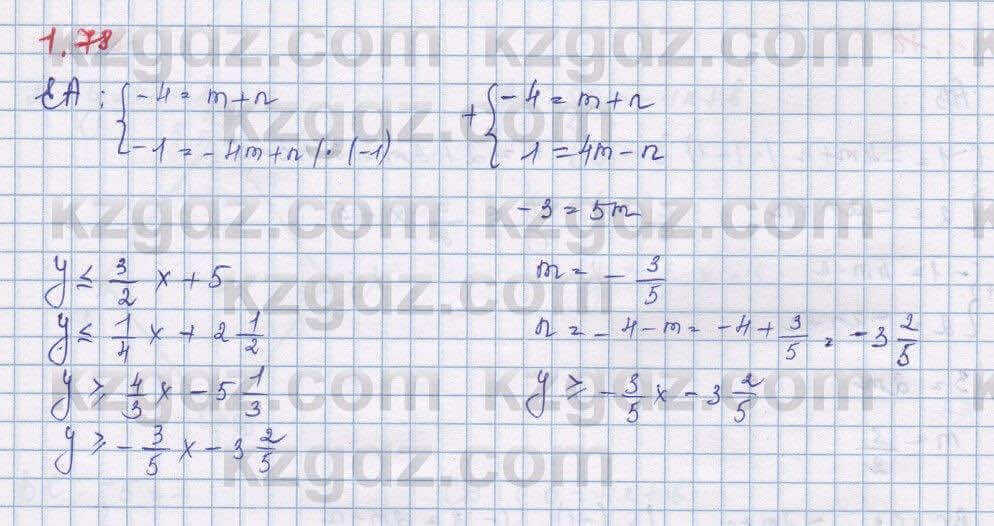 1.78
EA: { -4 = m+n
-1 = -4m+n |·(-1)
+ { -4 = m+n
1 = 4m-n
-3 = 5m
m = - 3/5
n = -4-m = -4 + 3/5 = -3 2/5
y ≥ - 3/5 x - 3 2/5
y ≤ 3/2 x + 5
y ≤ 1/4 x + 2 1/2
y ≥ 4/3 x - 5 1/3
y ≥ - 3/5 x - 3 2/5
kzgdz.com
kzgdz.com
kzgdz.com
kzgdz.com
kzgdz.com
kzgdz.com
kzgdz.com
kzgdz.com
kzgdz.com
kzgdz.com